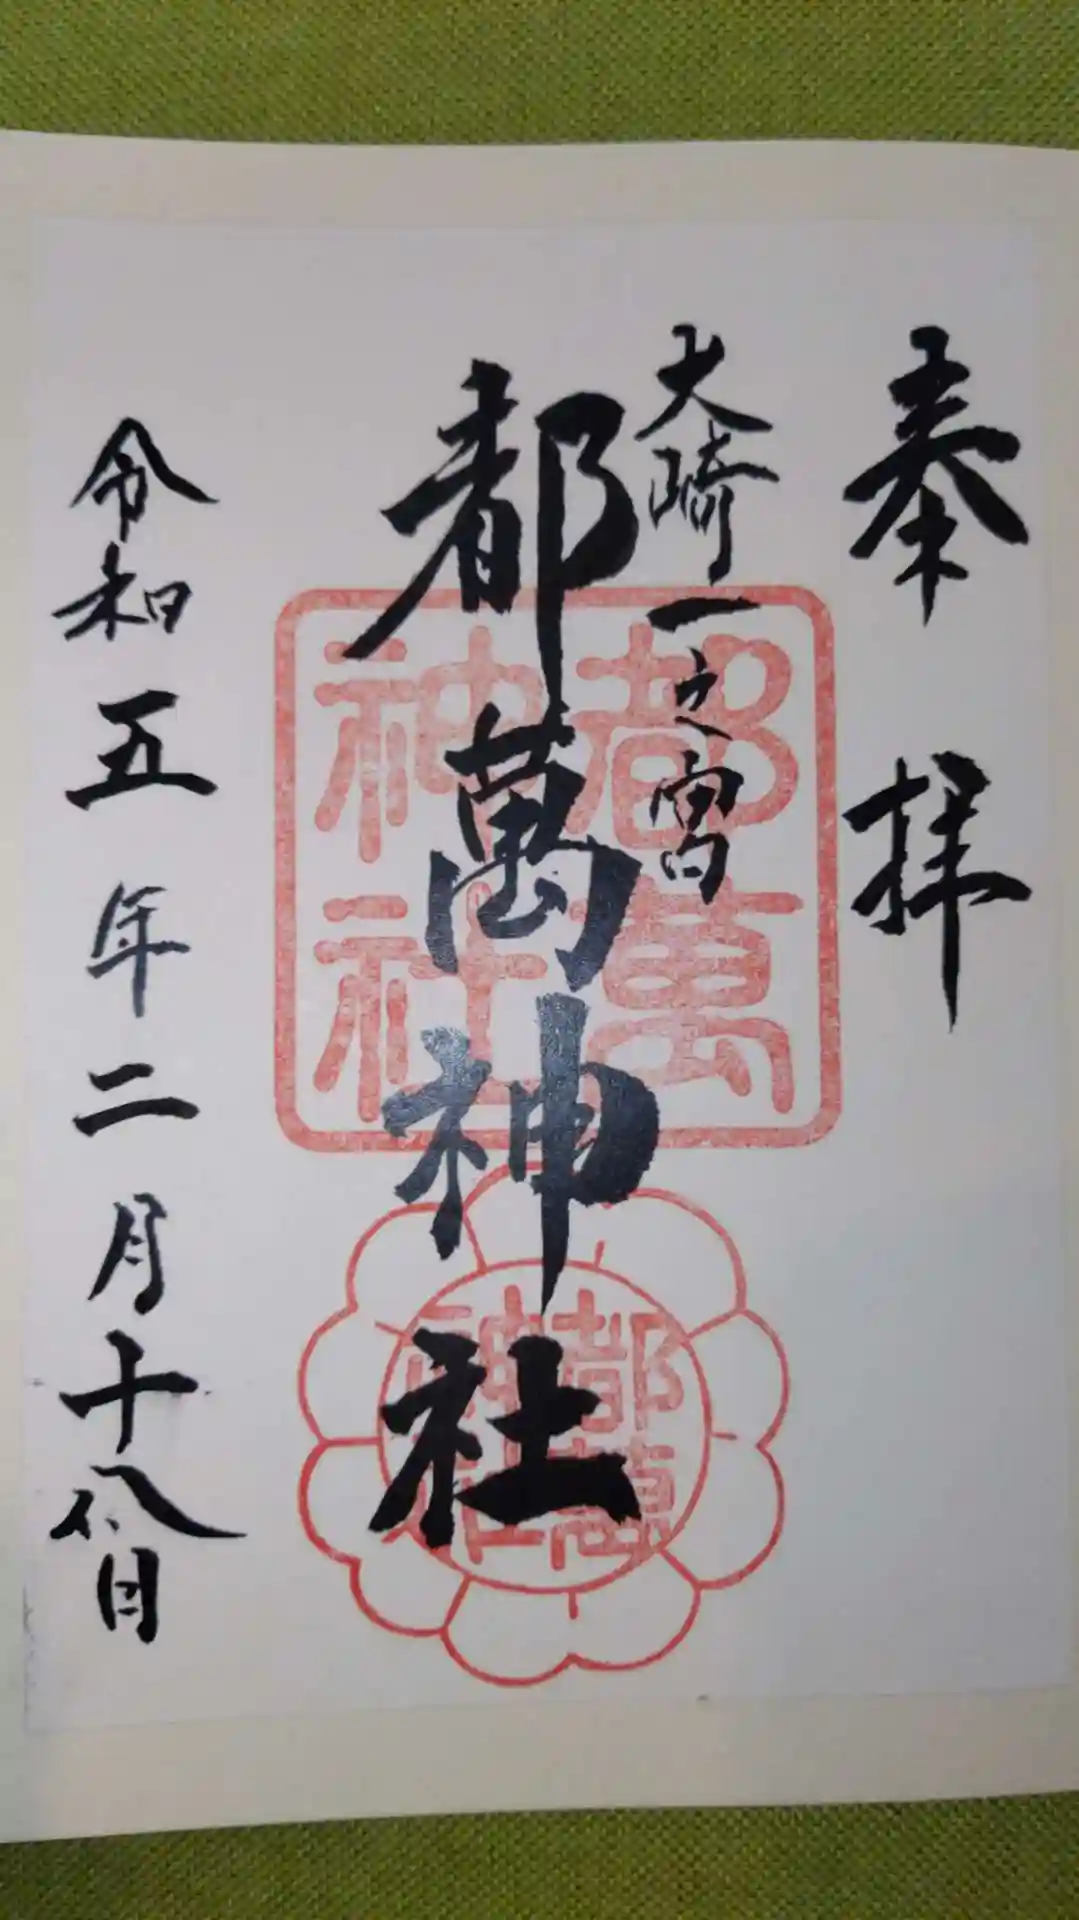 奉拝
大崎一之宮
都萬神社
令和五年二月十八日
都萬
神社
都萬
神社